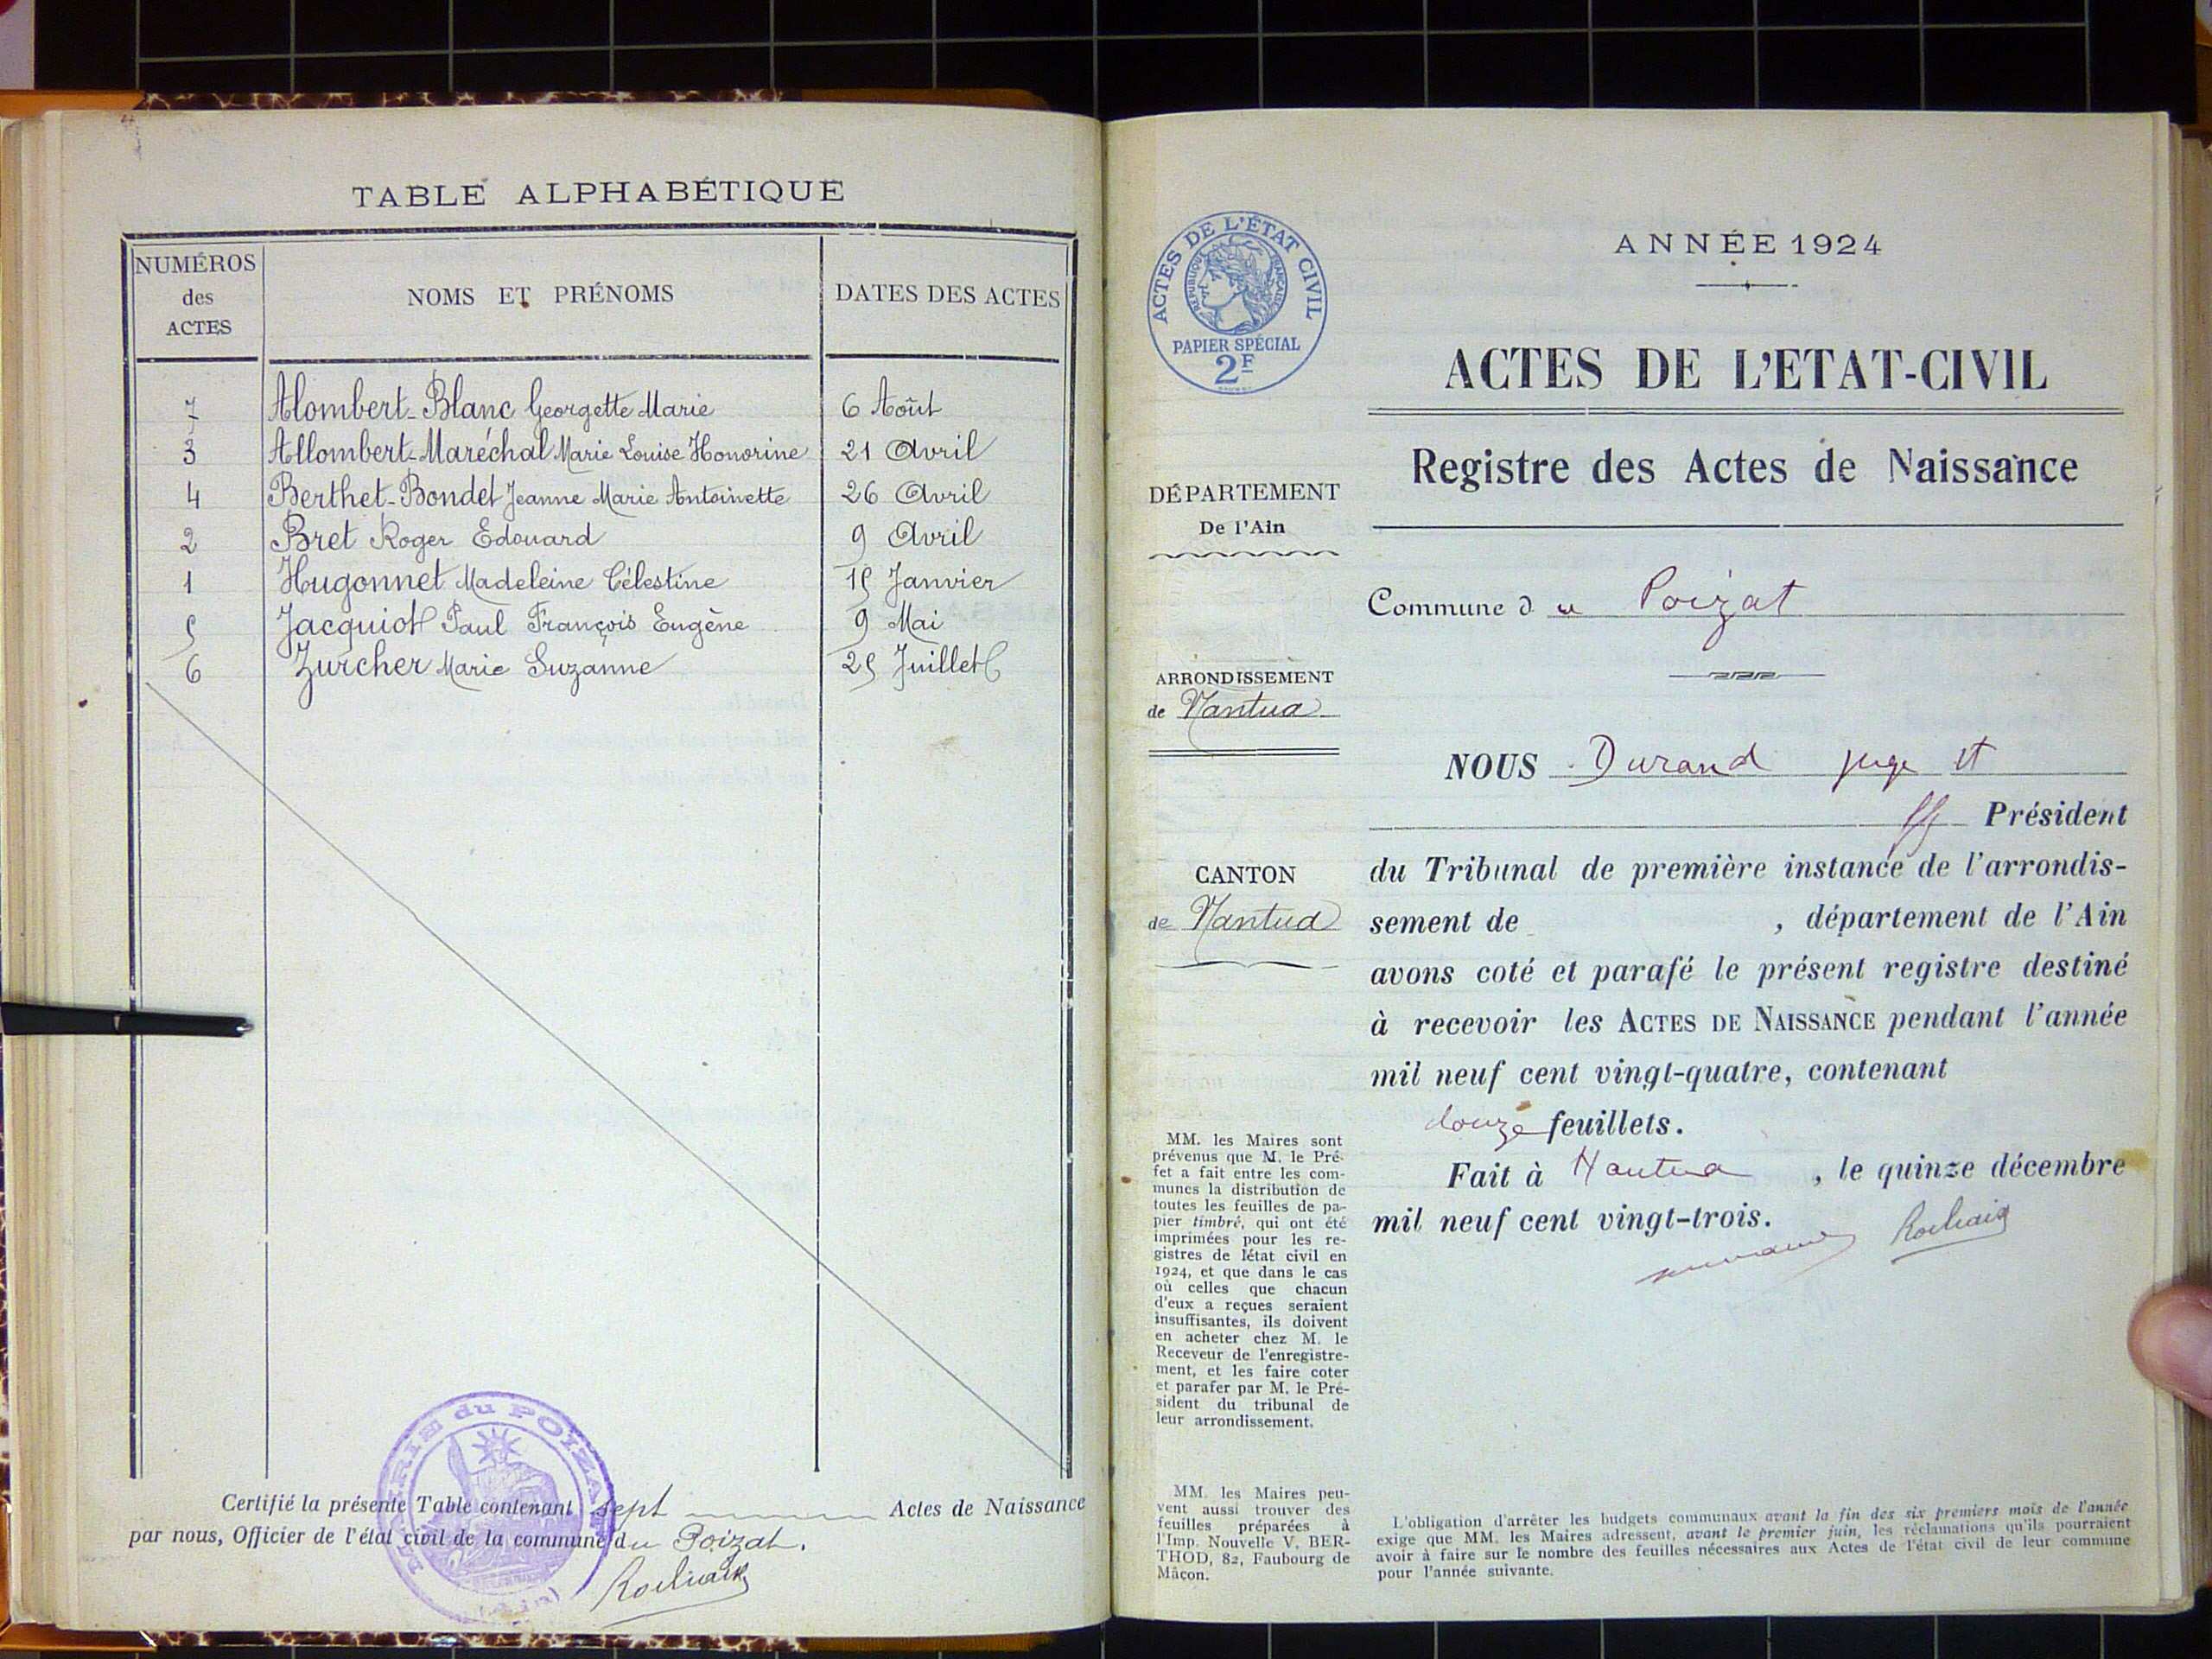 TABLE ALPHABÉTIQUE
NUMÉROS
des
ACTES
NOMS ET PRÉNOMS
DATES DES ACTES
7 Alombert-Blanc Georgette Marie 6 Août
3 Allombert-Maréchal Marie Louise Honorine 21 Avril
4 Berthet-Bondet Jeanne Marie Antoinette 26 Avril
2 Bret Roger Edouard 9 Avril
1 Hugonnet Madeleine Célestine 15 Janvier
5 Jacquiot Paul François Eugène 9 Mai
6 Zurcher Marie Suzanne 25 Juillet
Certifié la présente Table contenant sept Actes de Naissance
par nous, Officier de l'état civil de la commune du Poizat.
MAIRIE du POIZAT
(Ain)
ACTES DE L'ÉTAT CIVIL
RÉPUBLIQUE FRANÇAISE
PAPIER SPÉCIAL
2F
DÉPARTEMENT
De l'Ain
ARRONDISSEMENT
de Nantua
CANTON
de Nantua
MM. les Maires sont
prévenus que M. le Pré-
fet a fait entre les com-
munes la distribution de
toutes les feuilles de pa-
pier timbré, qui ont été
imprimées pour les re-
gistres de l'état civil en
1924, et que dans le cas
où celles que chacun
d'eux a reçues seraient
insuffisantes, ils doivent
en acheter chez M. le
Receveur de l'enregistre-
ment, et les faire coter
et parafer par M. le Pré-
sident du tribunal de
leur arrondissement.
MM. les Maires peu-
vent aussi trouver des
feuilles préparées à
l'Imp. Nouvelle V. BER-
THOD, 82, Faubourg de
Mâcon.
ANNÉE 1924
ACTES DE L'ETAT-CIVIL
Registre des Actes de Naissance
Commune du Poizat
NOUS Durand juge et
ff Président
du Tribunal de première instance de l'arrondis-
sement de , département de l'Ain
avons coté et parafé le présent registre destiné
à recevoir les ACTES DE NAISSANCE pendant l'année
mil neuf cent vingt-quatre, contenant
douze feuillets.
Fait à Nantua , le quinze décembre
mil neuf cent vingt-trois.
L'obligation d'arrêter les budgets communaux avant la fin des six premiers mois de l'année
exige que MM. les Maires adressent, avant le premier juin, les réclamations qu'ils pourraient
avoir à faire sur le nombre des feuilles nécessaires aux Actes de l'état civil de leur commune
pour l'année suivante.